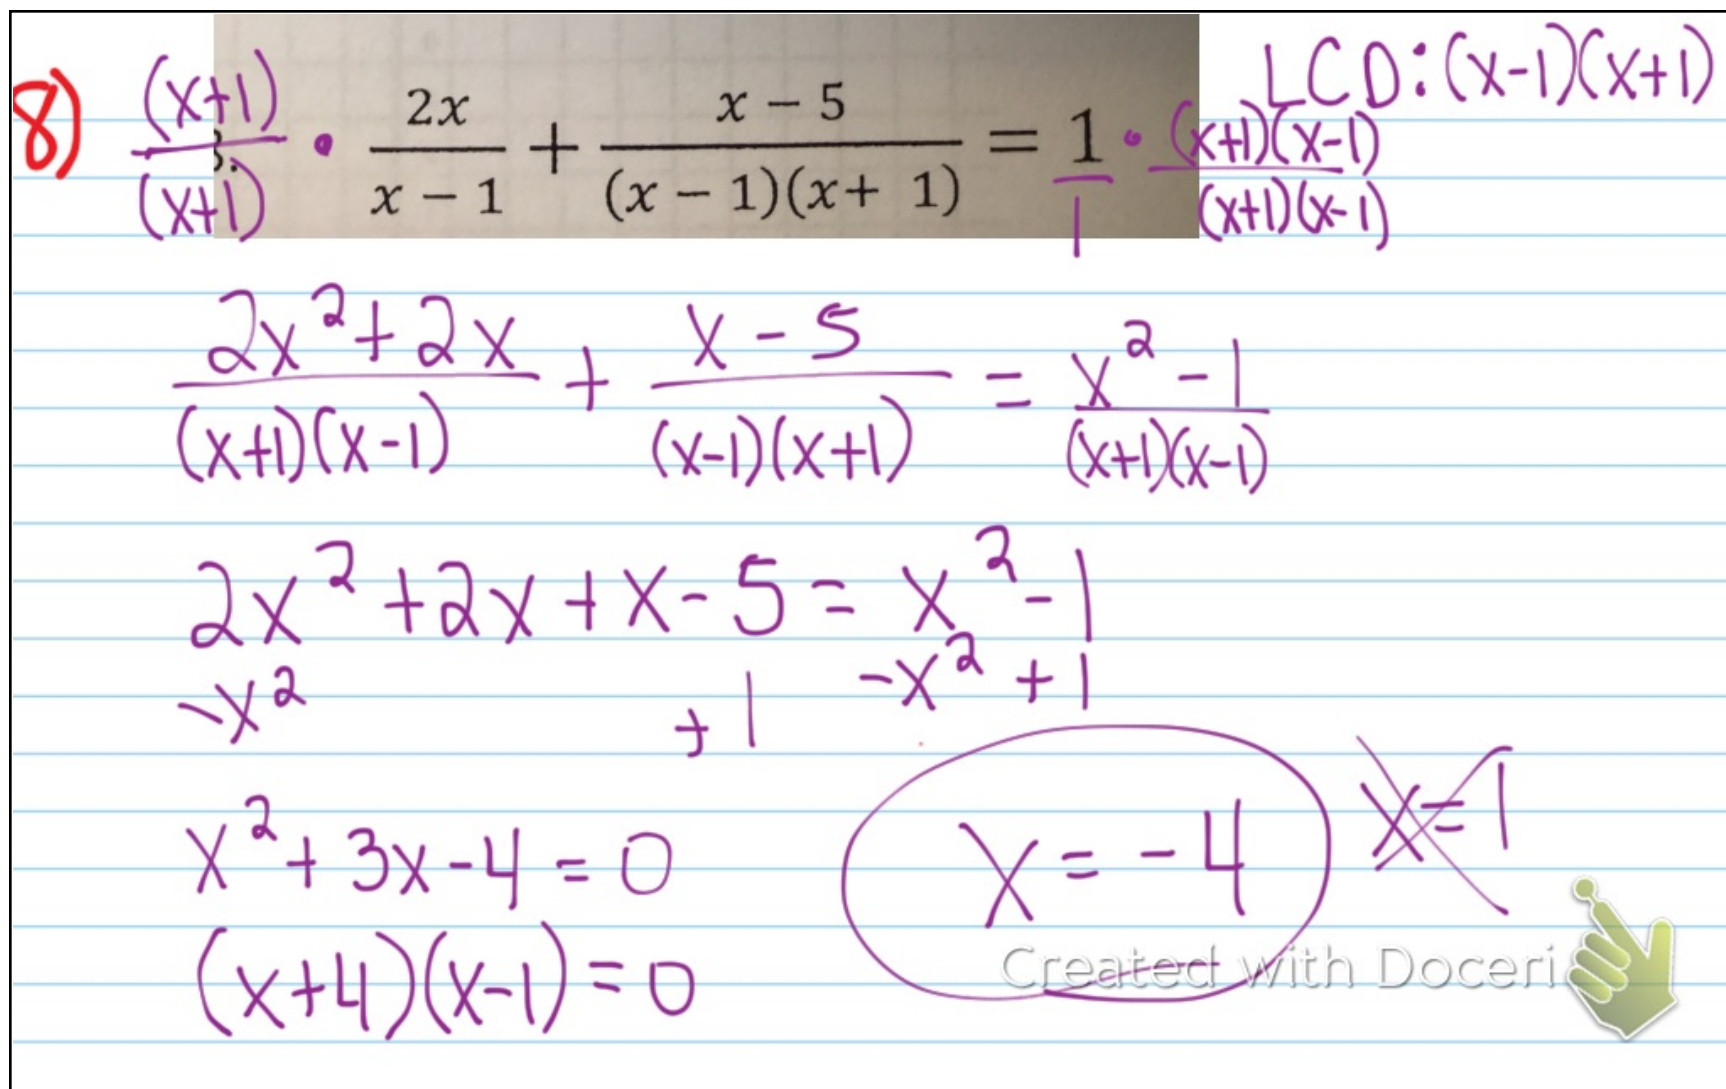 LCD: (x-1)(x+1)
8) (x+1)/(x+1) • 2x/(x − 1) + (x − 5)/((x − 1)(x + 1)) = 1/1 • (x+1)(x-1)/(x+1)(x-1)
(2x² + 2x)/((x+1)(x-1)) + (x - 5)/((x-1)(x+1)) = (x² - 1)/((x+1)(x-1))
2x² + 2x + x - 5 = x² - 1
-x² + 1 -x² + 1
x² + 3x - 4 = 0
x = -4 x = 1
(x+4)(x-1) = 0
Created with Doceri